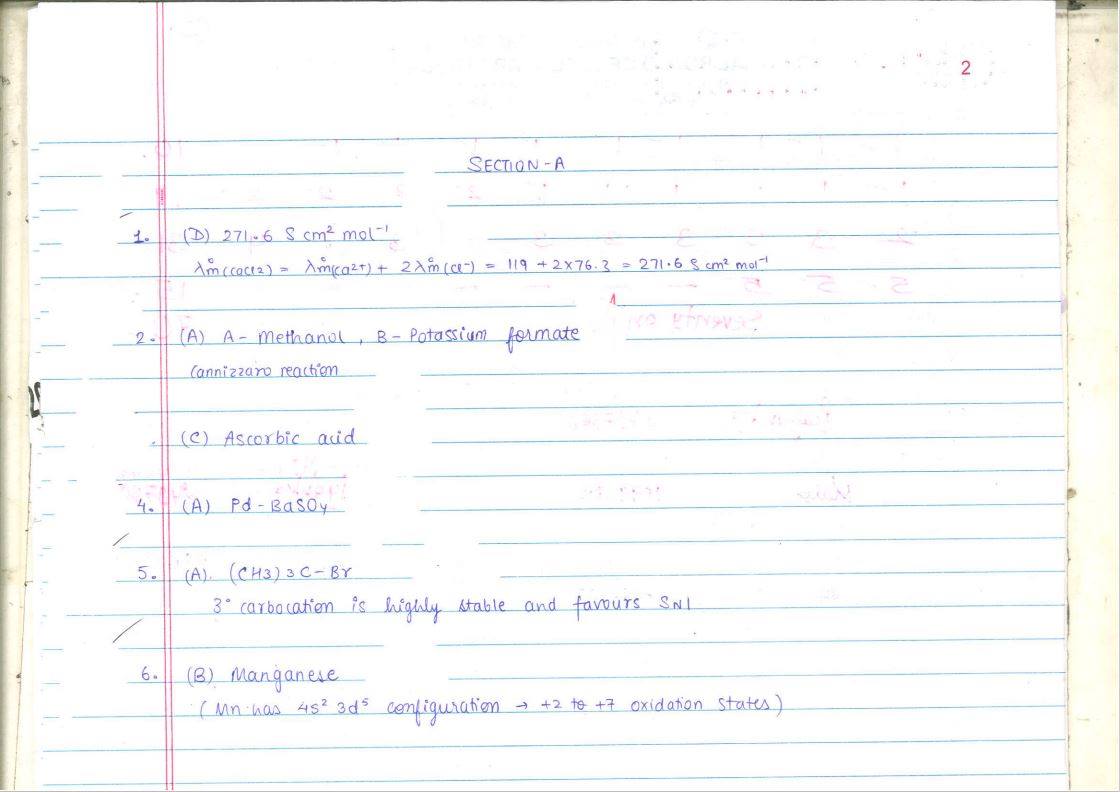 2
SECTION-A
1. (D) 271.6 S cm² mol⁻¹
λ°m(CaCl2) = λ°m(Ca2+) + 2λ°m(Cl-) = 119 + 2×76.3 = 271.6 S cm² mol⁻¹
2. (A) A- Methanol, B- Potassium formate
Cannizzaro reaction
(C) Ascorbic acid
4. (A) Pd-BaSO4
5. (A). (CH3)3C-Br
3° carbocation is highly stable and favours SN1
6. (B) Manganese
(Mn has 4s² 3d⁵ configuration → +2 to +7 oxidation states)